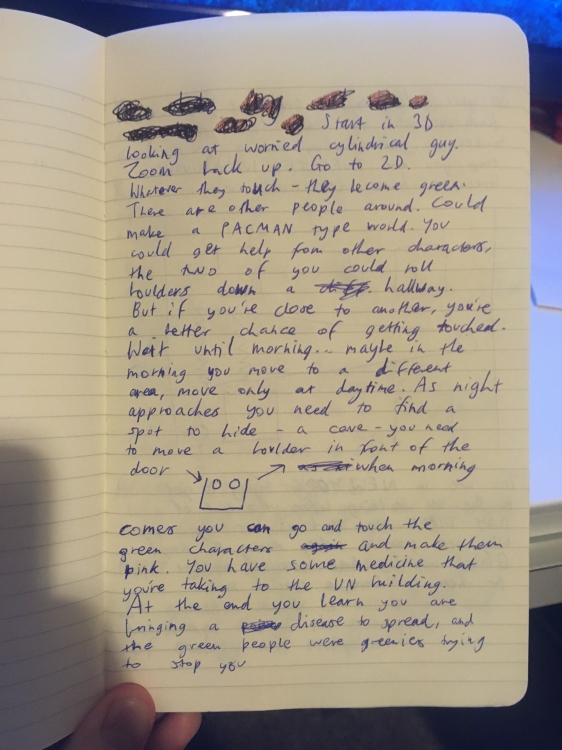 Start in 3D
looking at worried cylindrical guy.
Zoom back up. Go to 2D.
Whatever they touch - they become green.
There are other people around. Could
make a PACMAN type world. You
could get help from other characters,
the two of you could roll
boulders down a hallway.
But if you're close to another, you're
a better chance of getting touched.
Wait until morning... maybe in the
morning you move to a different
area, move only at daytime. As night
approaches you need to find a
spot to hide - a cave - you need
to move a boulder in front of the
door when morning
comes you can go and touch the
green characters and make them
pink. You have some medicine that
you're taking to the UN building.
At the end you learn you are
bringing a disease to spread, and
the green people were greenies trying
to stop you